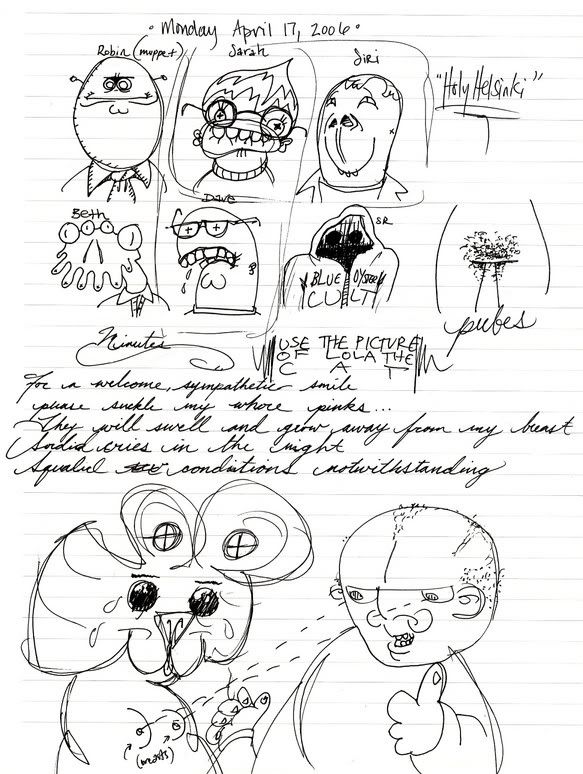 • Monday April 17, 2006 •
Robin (muppet)
Sarah
Siri
"Holy Helsinki"
Beth
Dave
SR
BLUE OYSTER
CULT
pubes
Minutes
USE THE PICTURE
OF LOLA THE
CAT
For a welcome, sympathetic smile
please suckle my whore pinks...
They will swell and grow away from my beast
India cries in the night
Squalid conditions notwithstanding
(moists)